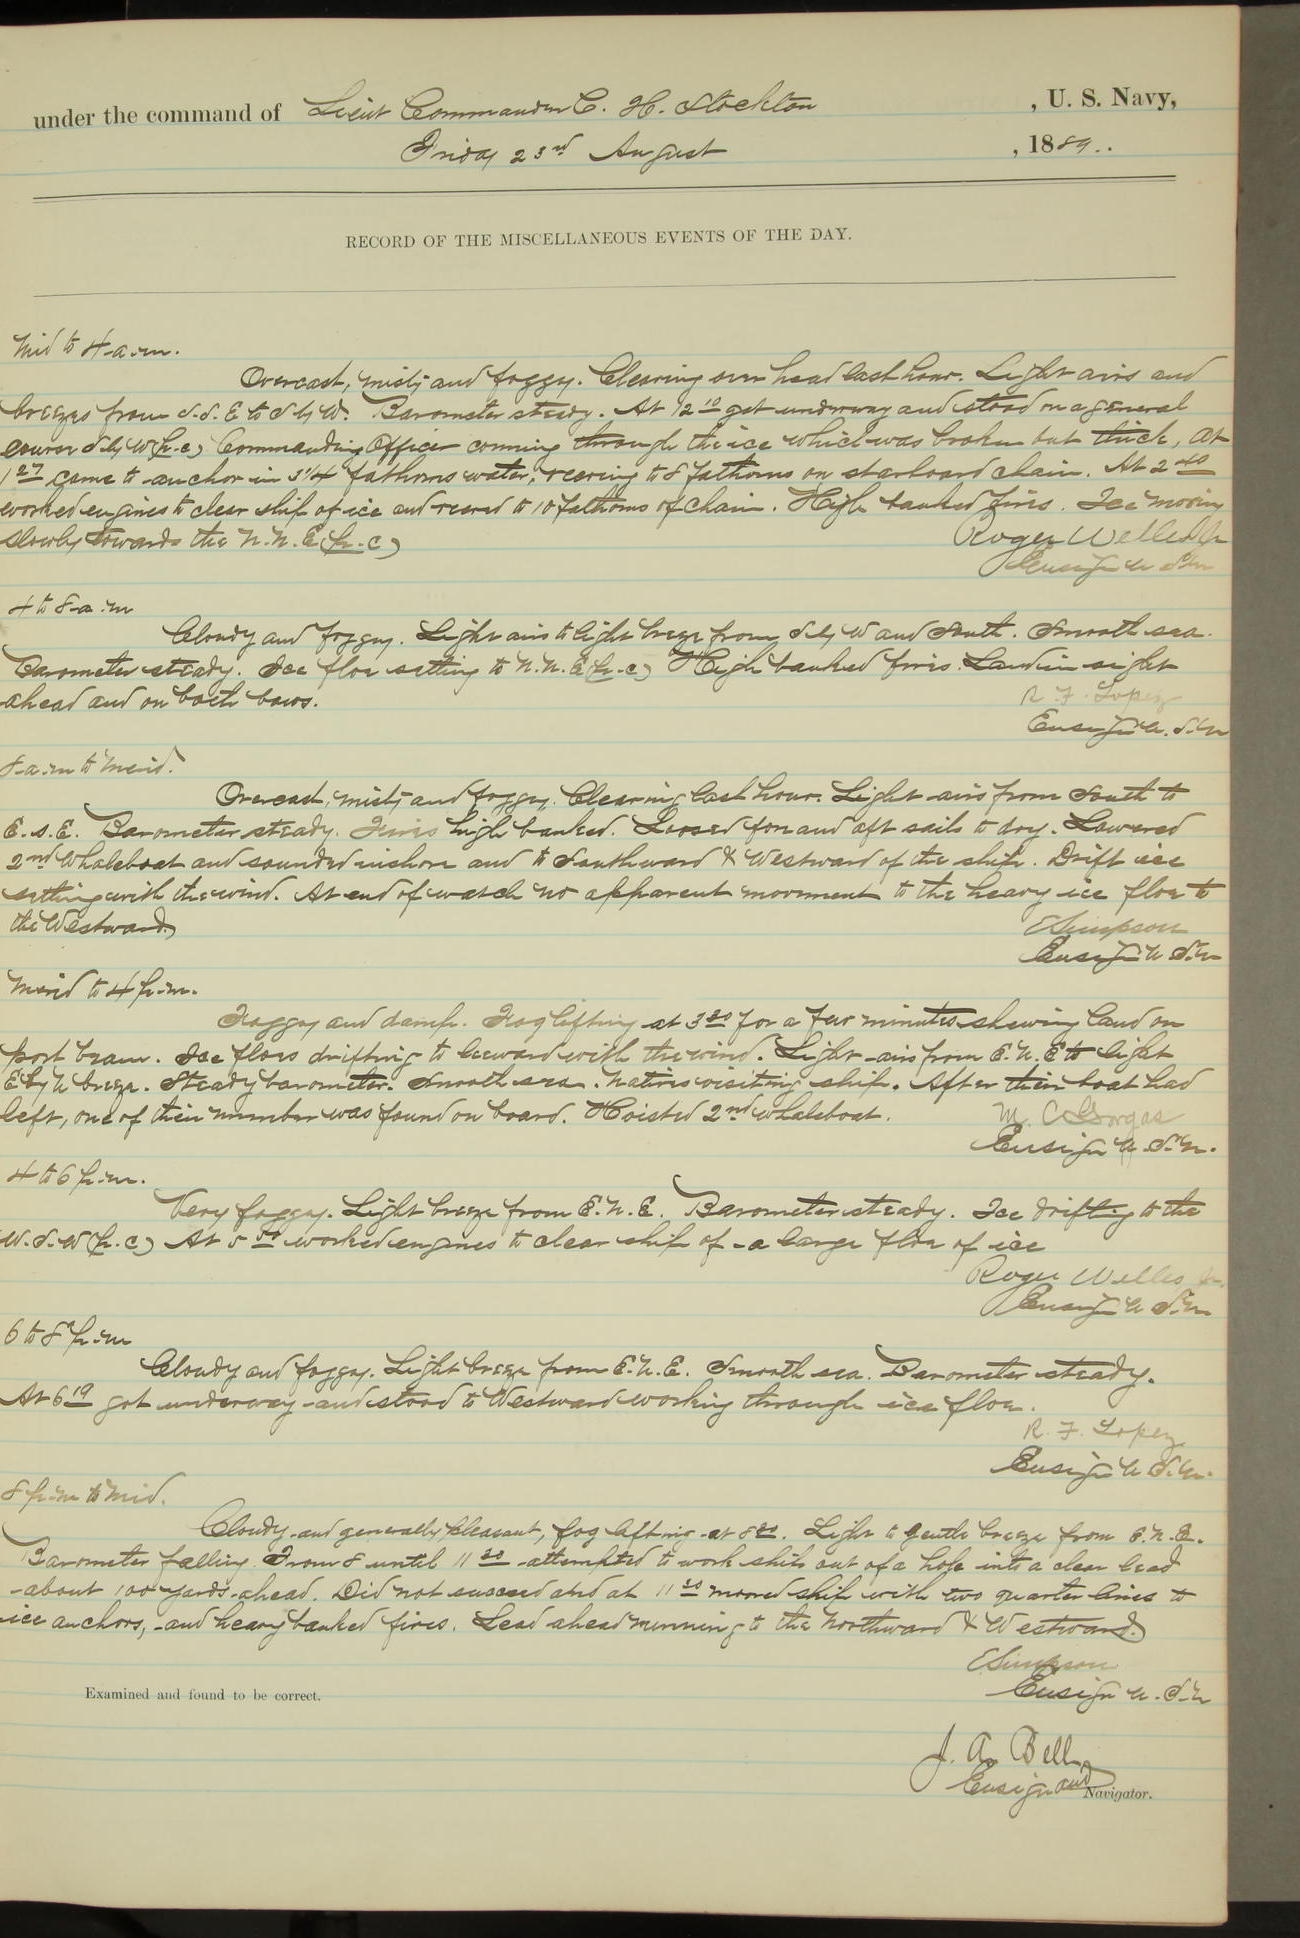 under the command of Lieut Commander C. H. Stockton , U. S. Navy,
Friday 23rd August , 1889.
RECORD OF THE MISCELLANEOUS EVENTS OF THE DAY.
Mid to 4 a.m.
Overcast, misty and foggy. Clearing over head last hour. Light airs and
breezes from S.S.E to S by W. Barometer steady. At 12 10 got underway and stood on a general
course S by W (p.c) Commanding Officer conning through the ice which was broken but thick, at
1 27 came to anchor in 5 1/4 fathoms water, veering to 8 fathoms on starboard chain. At 2 40
worked engines to clear ship of ice and veered to 10 fathoms of chain. High banked fires. Ice moving
slowly towards the N.N.E (p.c)
Roger Welles Jr
Ensign U.S.N
4 to 8 a.m
Cloudy and foggy. Light airs to light breeze from S by W and South. Smooth sea.
Barometer steady. Ice floe setting to N.N.E (p.c) High banked fires. Land in sight
ahead and on both bows.
R. F. Lopez
Ensign U.S.N
8 a.m to Merid.
Overcast, misty and foggy. Clearing last hour. Light airs from South to
E.S.E. Barometer steady. Fires high banked. Loosed fore and aft sails to dry. Lowered
2nd Whaleboat and sounded inshore and to Southward & Westward of the ship. Drift ice
setting with the wind. At end of watch no apparent movement to the heavy ice floe to
the Westward.
E Simpson
Ensign U.S.N
Merid to 4 p.m.
Foggy and damp. Fog lifting at 3 30 for a few minutes shewing land on
port beam. Ice floes drifting to leeward with the wind. Light airs from E.N.E to light
E by N breeze. Steady barometer. Smooth sea. Natives visiting ship. After their boat had
left, one of their number was found on board. Hoisted 2nd whaleboat.
M. C Gorgas
Ensign U.S.N.
4 to 6 p.m.
Very foggy. Light breeze from E.N.E. Barometer steady. Ice drifting to the
W.S.W (p.c) At 5 50 worked engines to clear ship of a large floe of ice
Roger Welles Jr.
Ensign U.S.N
6 to 8 p.m
Cloudy and foggy. Light breeze from E.N.E. Smooth sea. Barometer steady.
At 6 19 got underway and stood to Westward working through ice floe.
R. F. Lopez
Ensign U.S.N.
8 p.m to Mid.
Cloudy and generally pleasant, fog lifting at. Light to gentle breeze from E.N.E.
Barometer falling. From 8 until 11 30 attempted to work ship out of a hole into a clear lead
about 100 yards ahead. Did not succeed and at 11 30 moored ship with two quarter lines to
ice anchors, and heavy banked fires. Lead ahead running to the Northward & Westward.
E Simpson
Ensign U.S.N
Examined and found to be correct.
J. A. Bell
Ensign and Navigator.